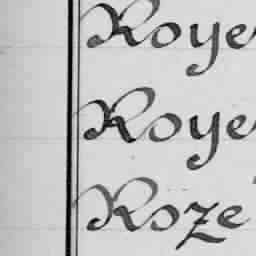 Roye
Roye
Roze